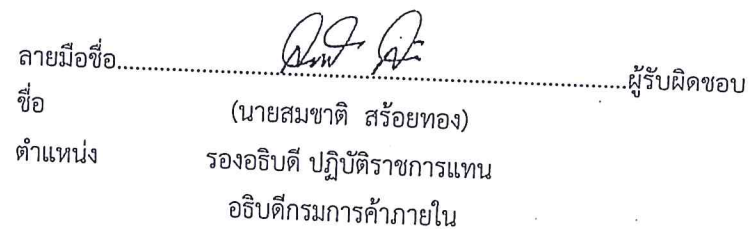 ลายมือชื่อ........................................................................ผู้รับผิดชอบ
ชื่อ (นายสมชาติ สร้อยทอง)
ตำแหน่ง รองอธิบดี ปฏิบัติราชการแทน
อธิบดีกรมการค้าภายใน